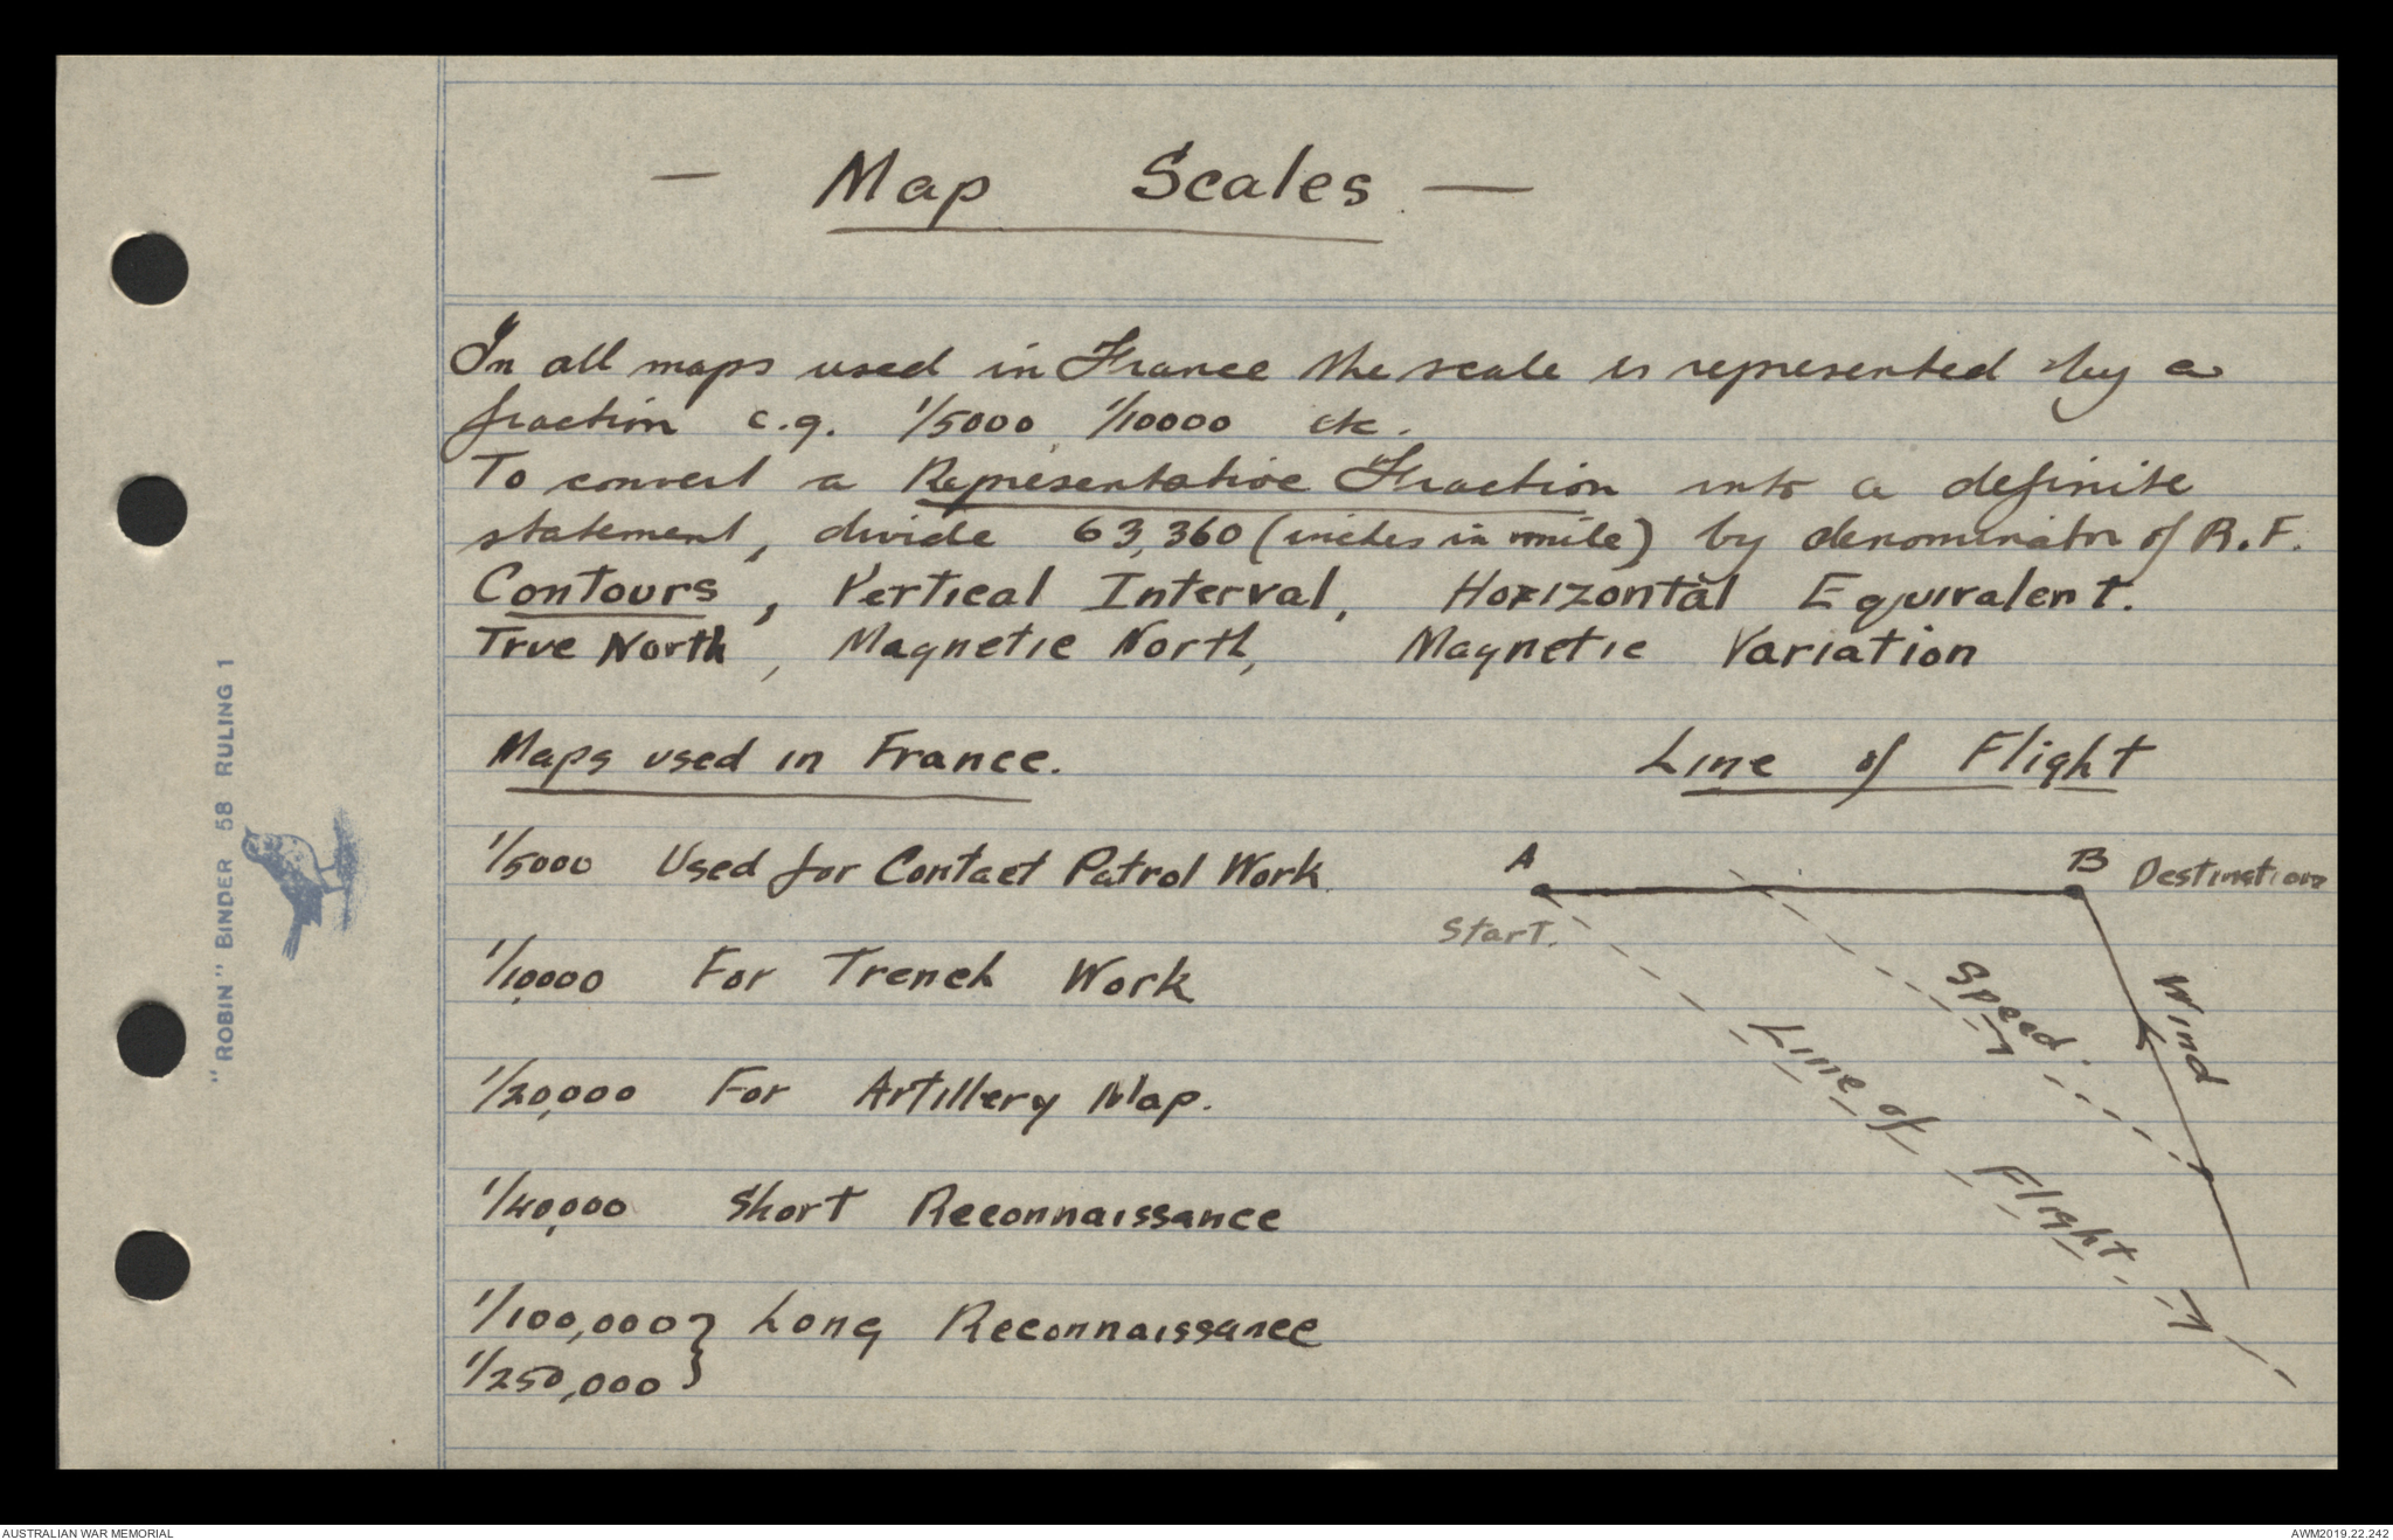 — Map Scales —
In all maps used in France the scale is represented by a
fraction e.g. 1/5000, 1/10000 etc.
To convert a Representative Fraction into a definite
statement, divide 63,360 (inches in mile) by denominator of R.F.
Contours, Vertical Interval, Horizontal Equivalent.
True North, Magnetic North, Magnetic Variation
Maps used in France.
1/5000 Used for Contact Patrol Work.
1/10,000 For Trench Work
1/20,000 For Artillery Map.
1/40,000 Short Reconnaissance
1/100,000 } Long Reconnaissance
1/250,000
Line of Flight
A
B Destination
Start.
Speed
Wind
Line of Flight
"ROBIN" BINDER 58 RULING 1
AUSTRALIAN WAR MEMORIAL
AWM2019.22.242